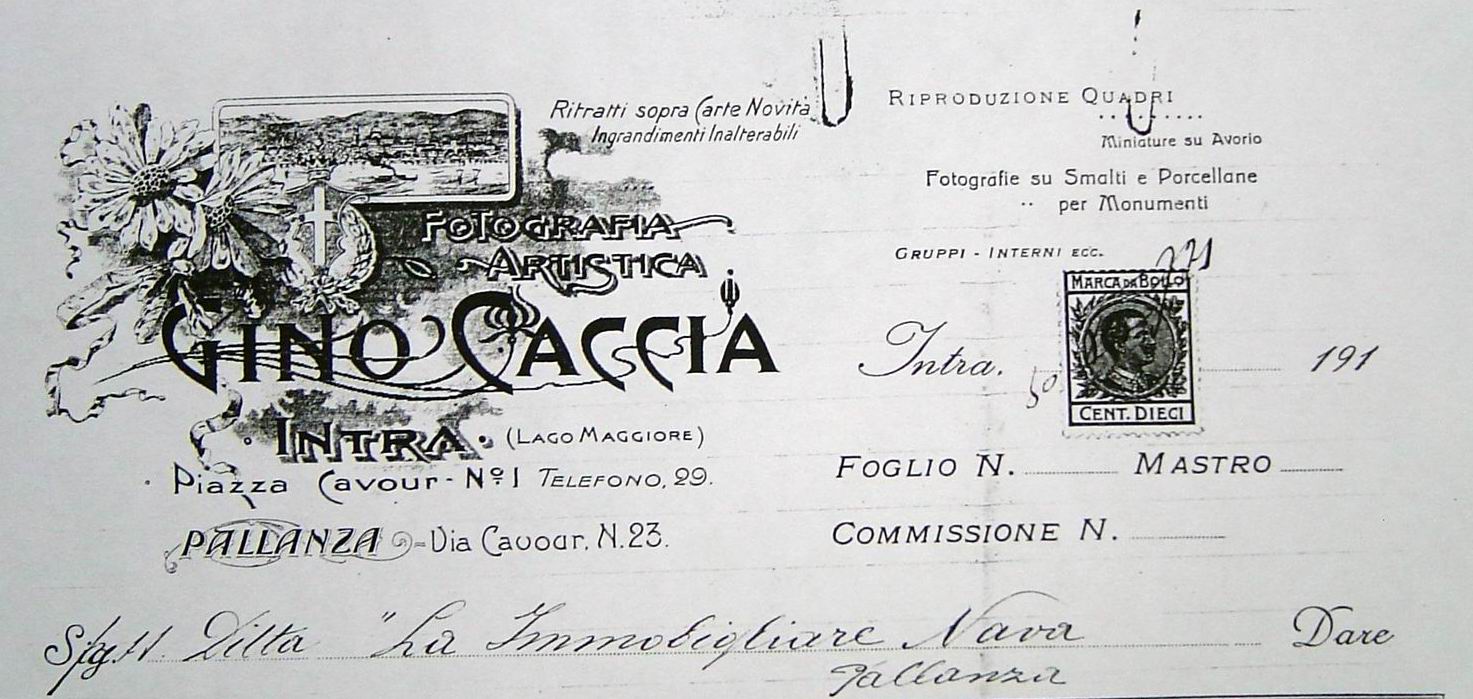 Ritratti sopra Carte Novità
Ingrandimenti Inalterabili
FOTOGRAFIA
ARTISTICA
GINO CACCIA
INTRA. (LAGO MAGGIORE)
Piazza Cavour - Nº 1 TELEFONO, 29.
PALLANZA - Via Cavour, N. 23.
RIPRODUZIONE QUADRI
Miniature su Avorio
Fotografie su Smalti e Porcellane
per Monumenti
GRUPPI - INTERNI ECC.
MARCA DA BOLLO
CENT. DIECI
Intra. 191
FOGLIO N. MASTRO
COMMISSIONE N.
Ditta "La Immobigliare Nava Dare
Pallanza